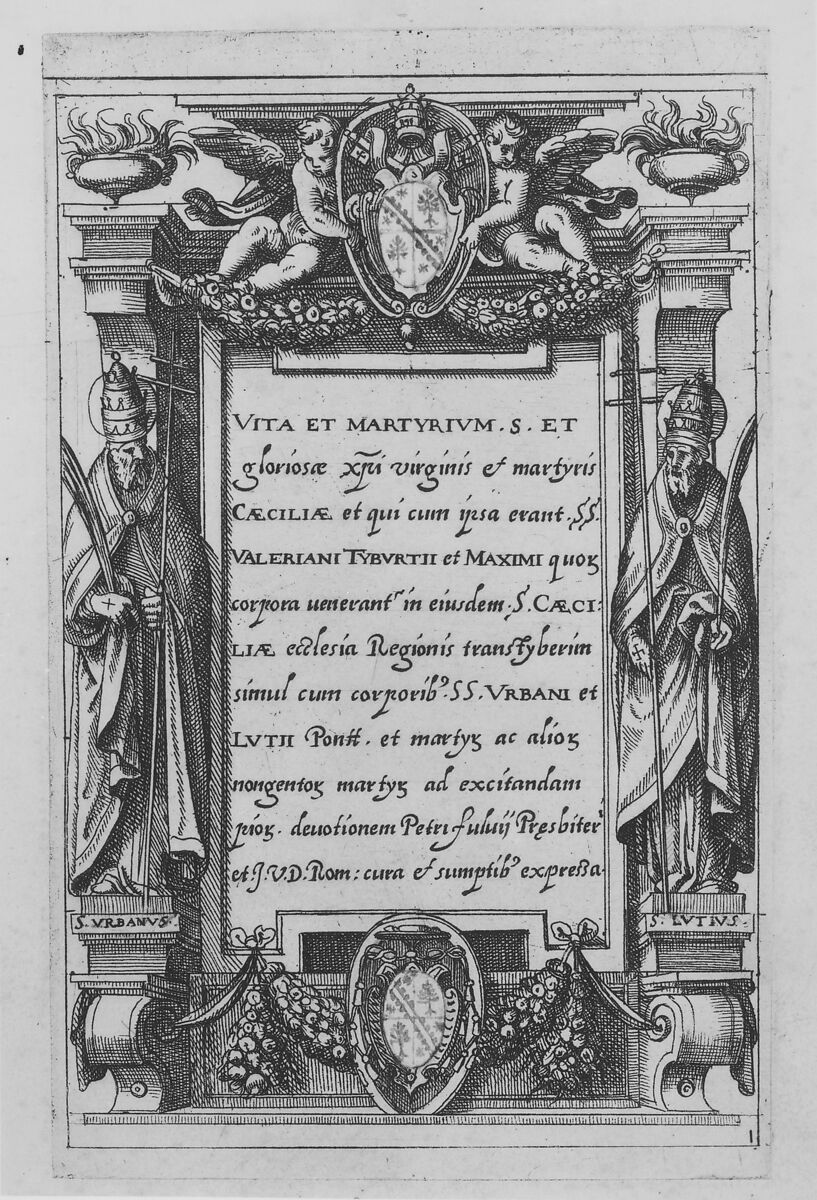 VITA ET MARTYRIVM . S . ET
gloriosæ xp̃i virginis et martyris
CÆCILIÆ et qui cum ipsa erant . SS.
VALERIANI TYBVRTII et MAXIMI quoꝝ
corpora uenerantʳ in eiusdem . S. CÆCI:
LIÆ ecclesia Regionis transtyberim
simul cum corporibꝰ . SS . VRBANI et
LVTII Pontt . et martyꝝ ac alioꝝ
nongentoꝝ martyꝝ ad excitandam
pioꝝ . deuotionem Petri fuluij Pręsbiterʳ
et J.V.D. Rom : cura et sumptibꝰ expressa .
S. VRBANVS .
S. LVTIVS .
1